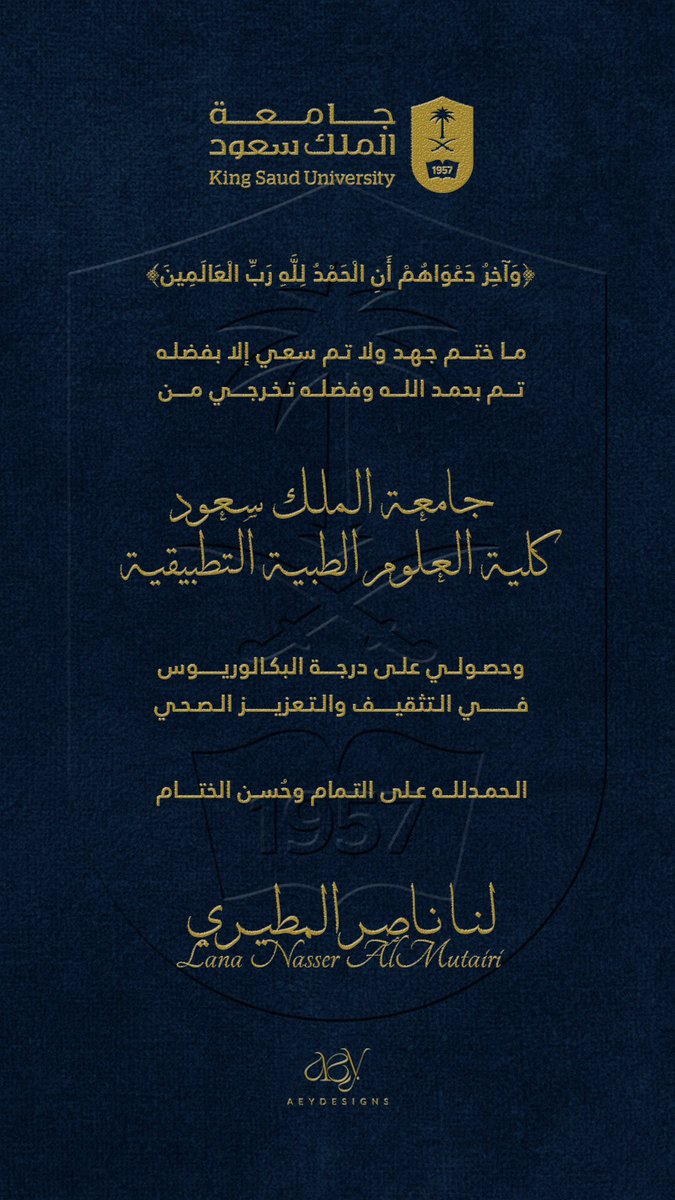 جامعة
الملك سعود
King Saud University
1957
﴿وَآخِرُ دَعْوَاهُمْ أَنِ الْحَمْدُ لِلَّهِ رَبِّ الْعَالَمِينَ﴾
ما ختم جهد ولا تم سعي إلا بفضله
تم بحمد الله وفضله تخرجي من
جامعة الملك سعود
كلية العلوم الطبية التطبيقية
وحصولي على درجة البكالوريوس
في التثقيف والتعزيز الصحي
الحمدلله على التمام وحُسن الختام
1957
لنا ناصر المطيري
Lana Nasser AlMutairi
aey
AEYDESIGNS